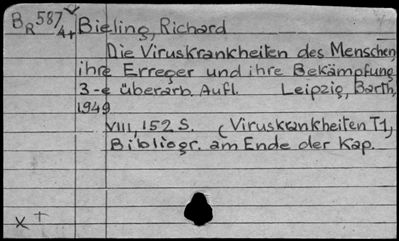 BR 587/4+ Bieling, Richard
Die Viruskrankheiten des Menschen,
ihre Erreger und ihre Bekämpfung
3-e überarb. Aufl. Leipzig, Barth,
1949
VIII, 152 S. (Viruskrankheiten T1,
Bibliogr. am Ende der Kap.
x +